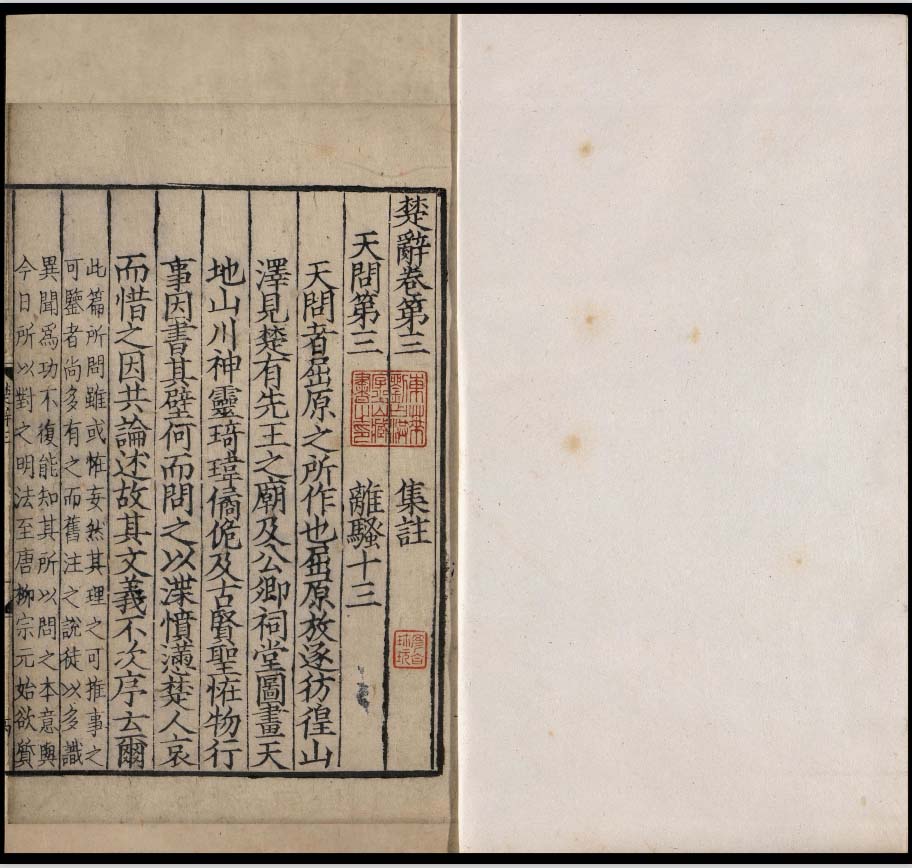 楚辭卷第三　集註
天問第三　離騷十三
天問者屈原之所作也屈原放逐彷徨山
澤見楚有先王之廟及公卿祠堂圖畫天
地山川神靈琦瑋僑佹及古賢聖恠物行
事因書其壁何而問之以渫憤懣楚人哀
而惜之因共論述故其文義不次序云爾
此篇所問雖或恠妄然其理之可推事之
可鑒者尚多有之而舊注之說徒以多識
異聞爲功不復能知其所以問之本意與
今日所以對之明法至唐柳宗元始欲質